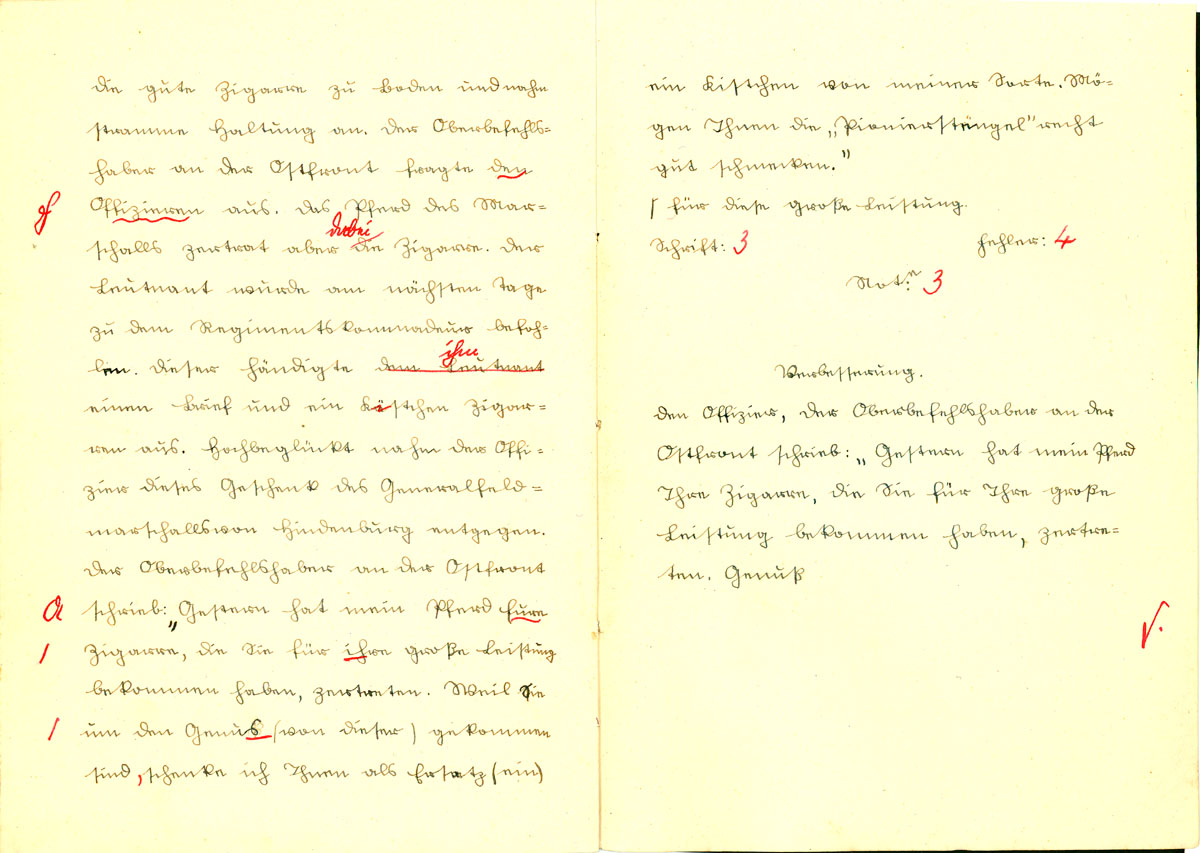 die gute Zigarre zu Boden und nahm
stramme Haltung an. Der Oberbefehls=
haber an der Ostfront fragte den
Offizieren aus. Das Pferd des Mar=
dabei
schalls zertrat aber die Zigarre. Der
Leutnant wurde am nächsten Tage
zu dem Regimentskommadeur befoh=
len. Dieser händigte dem Leutnant
ihm
einen Brief und ein Kistchen Zigar=
ren aus. Hochbeglückt nahm der Offi=
zier dieses Geschenk des Generalfeld=
marschalls von Hindenburg entgegen.
Der Oberbefehlshaber an der Ostfront
schrieb: „Gestern hat mein Pferd Eure
Zigarre, die Sie für ihre große Leistung
bekommen haben, zertreten. Weil Sie
um den Genus (von dieser) gekommen
sind, schenke ich Ihnen als Ersatz (ein)
ein Kistchen von meiner Sorte. Mö=
gen Ihnen die „Pionierstengel" recht
gut schmecken."
/ für diese große Leistung.
Schrift: 3 Fehler: 4
Note: 3
Verbesserung.
den Offizier, Der Oberbefehlshaber an der
Ostfront schrieb: „Gestern hat mein Pferd
Ihre Zigarre, die Sie für Ihre große
Leistung bekommen haben, zertre=
ten. Genuß